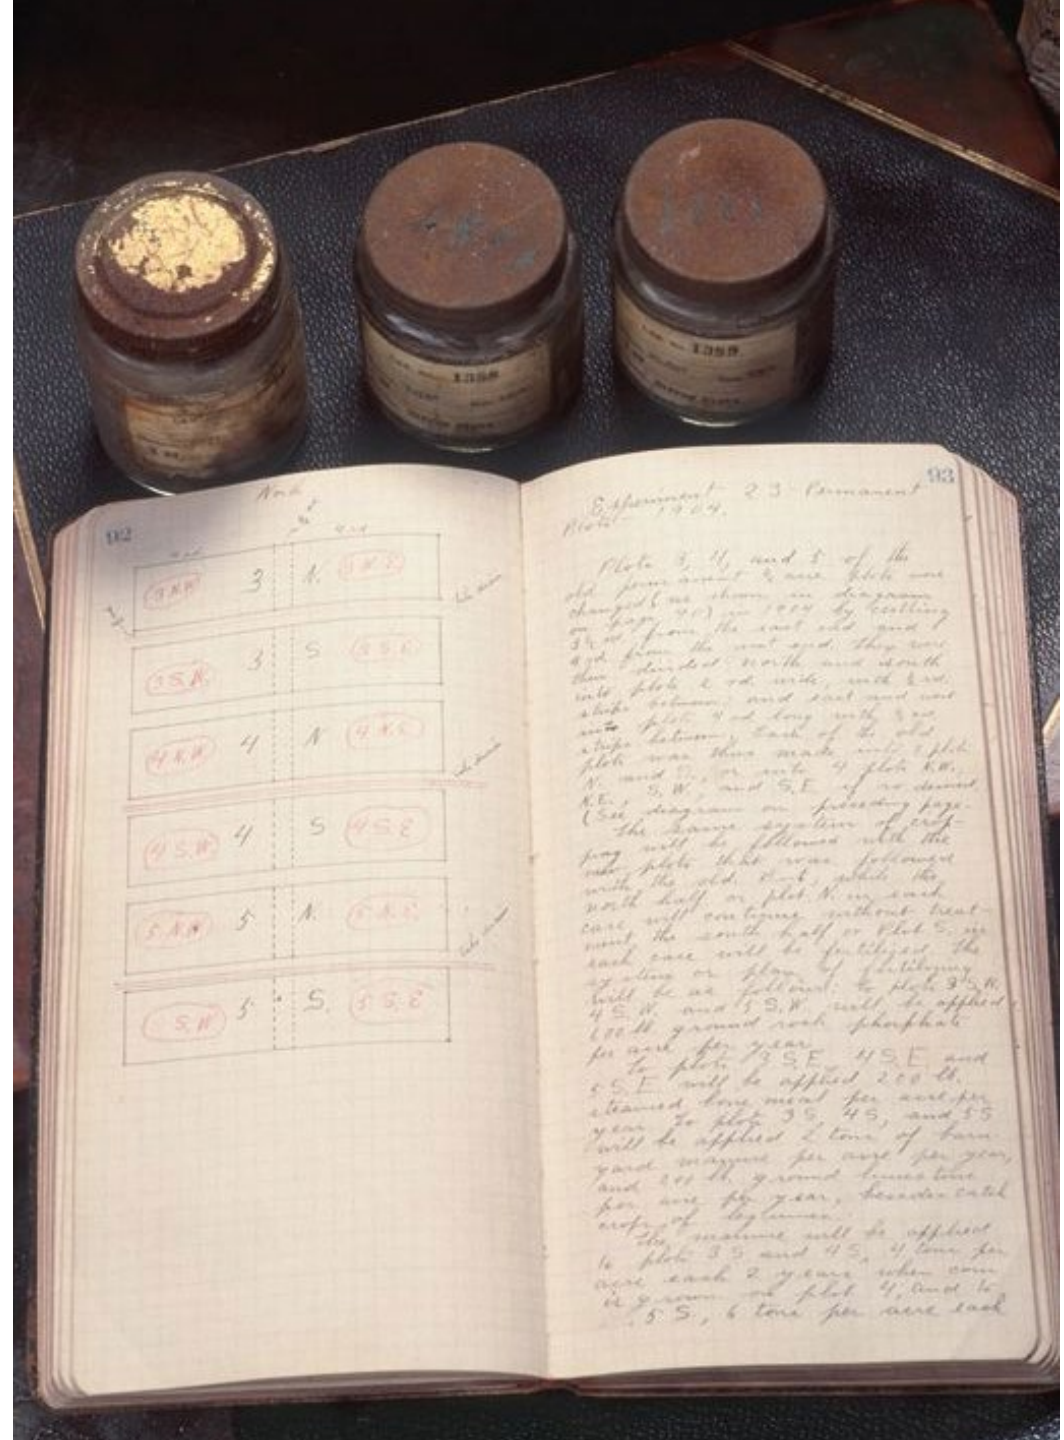 1358
1359
92
North
3 N.W. 3 N. 3 N.E.
3 S.W. 3 S 3 S.E.
4 N.W. 4 N 4 N.E.
4 S.W. 4 S 4 S.E.
5 N.W. 5 N. 5 N.E.
S.W. 5 S. 5 S.E.
93
Experiment 23 - Permanent
Plots 1904.
Plots 3, 4, and 5 of the
old permanent acre plots were
changed (as shown in diagram
on page 92) in 1904 by cutting
rd. from the east end and
rd. from the west end. They were
then divided north and south
into plots 2 rd. wide, with ½ rd.
strips between; and east and west
into plots 4 rd. long with ½ rd.
strips between. Each of the old
plots was thus made into 2 plots
N. and S., or into 4 plots N.W.,
N.E., S.W., and S.E. if so desired
(See diagram on preceding page.
The same system of crop-
ping will be followed with the
new plots that was followed
with the old. But, while the
north half or plot N. in each
case will continue without treat-
ment the south half or Plot S. in
each case will be fertilized. The
system or plan of fertilizing
will be as follows: To plots 3 S.W.
4 S.W. and 5 S.W. will be applied
200 lb. ground rock phosphate
per acre per year.
To plots 3 S.E. 4 S.E. and
5 S.E. will be applied 200 lb.
steamed bone meal per acre per
year. To plots 3 S, 4 S, and 5 S
will be applied 2 tons of barn-
yard manure per acre per year,
and 200 lb. ground limestone
per acre per year, besides catch
crops of legumes.
The manure will be applied
to plots 3 S and 4 S, 4 tons per
acre each 2 years when corn
is grown on plot 4, and to
5 S., 6 tons per acre each